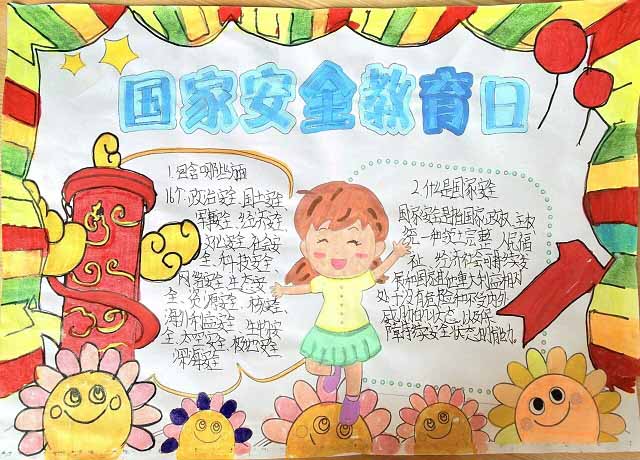 国家安全教育日
1.包含哪些方面
16个:政治安全、国土安全、
军事安全、经济安全、
文化安全、社会安
全、科技安全、
网络安全、生态安
全、资源安全、核安全、
海外利益安全、生物安
全、太空安全、极地安全、
深海安全
2.什么是国家安全
国家安全是指国家政权、主权、
统一和领土完整、人民福
祉、经济社会可持续发
展和国家其他重大利益相对
处于没有危险和不受内外
威胁的状态,以及保
障持续安全状态的能力。